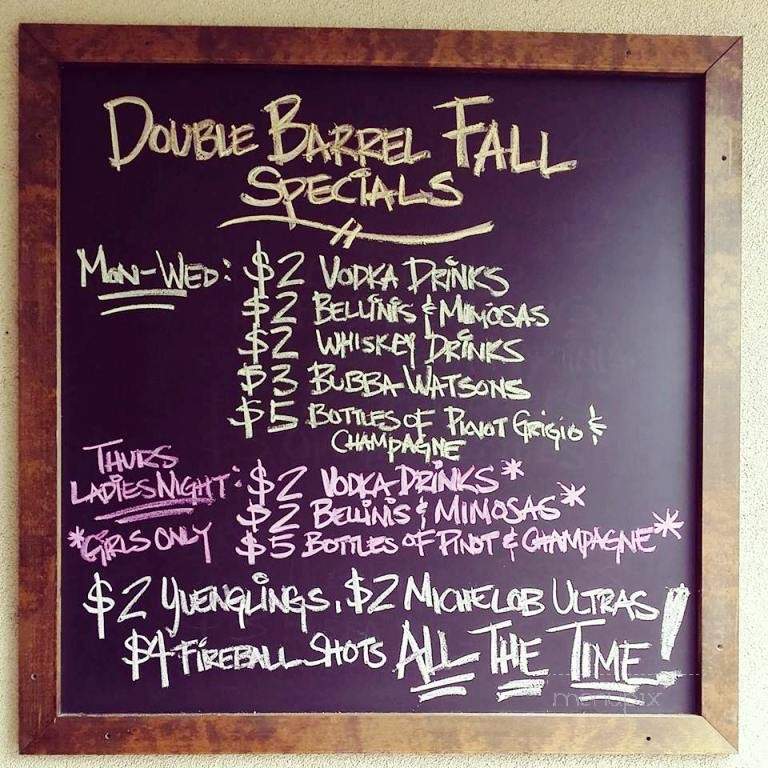 DOUBLE BARREL FALL
SPECIALS
MON-WED: $2 VODKA DRINKS
$2 BELLINIS & MIMOSAS
$2 WHISKEY DRINKS
$3 BUBBA WATSONS
$5 BOTTLES OF PIONOT GRIGIO &
CHAMPAGNE
THURS
LADIES NIGHT: $2 VODKA DRINKS*
$2 BELLINIS & MIMOSAS*
*GIRLS ONLY $5 BOTTLES OF PINOT & CHAMPAGNE*
$2 YUENGLINGS, $2 MICHELOB ULTRAS
$4 FIREBALL SHOTS ALL THE TIME!
menupix